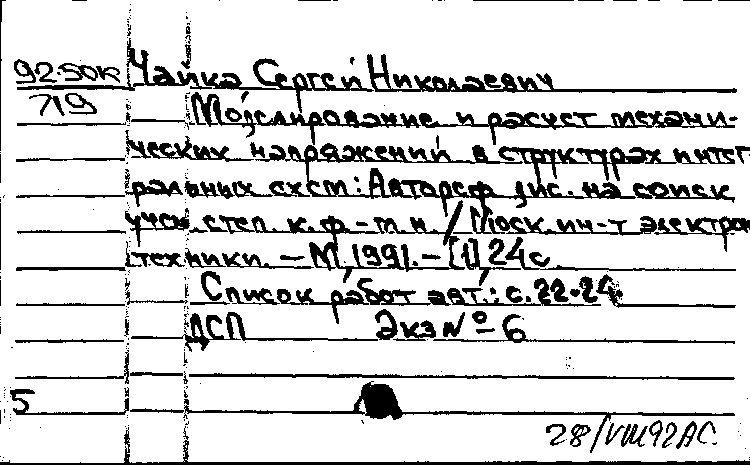 92-50К Чайка Сергей Николаевич
719 Моделирование и расчет механи-
ческих напряжений в структурах интег
ральных схем: Автореф. дис. на соиск.
учен. степ. к. ф.-т. н. / Моск. ин-т электрон
техники. - М., 1991. - [1], 24 с.
Список работ авт.: с. 22-24
ДСП Экз № 6
5
28/VIII 92 АС